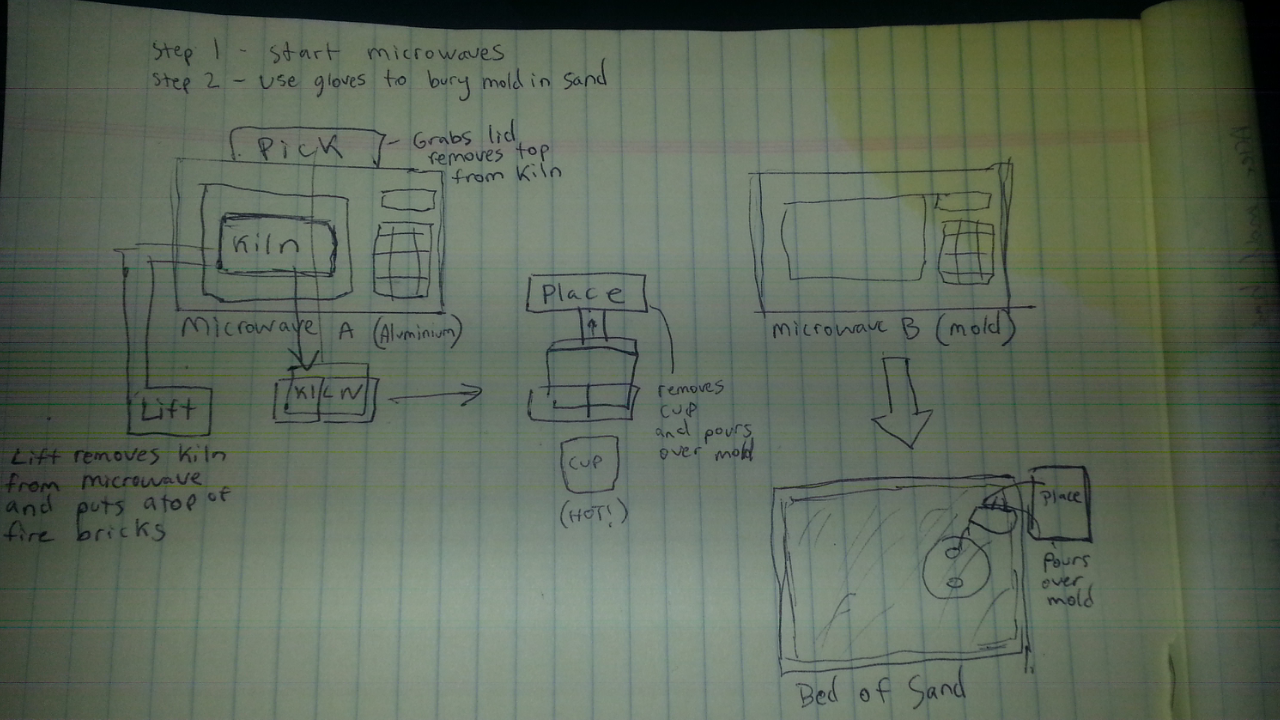 Step 1 - Start microwaves
Step 2 - Use gloves to bury mold in sand
Pick
- Grabs lid
removes top
from kiln
Kiln
Microwave A (Aluminium)
Place
removes
cup
and pours
over mold
Microwave B (mold)
Lift
KILN
Lift removes kiln
from microwave
and puts atop of
fire bricks
cup
(HOT!)
Place
Pours
over
mold
Bed of Sand